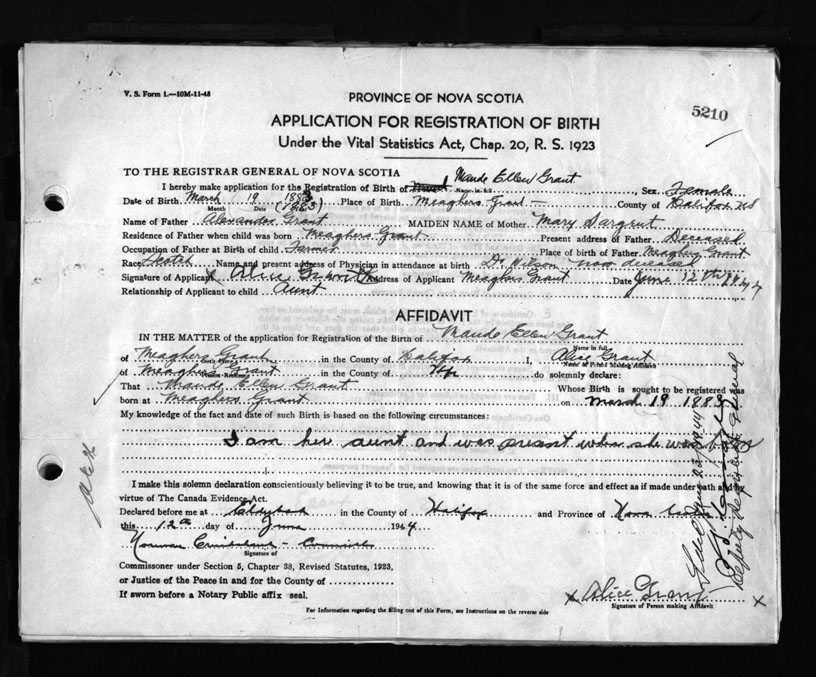 V. S. Form 1.—10M-11-43
PROVINCE OF NOVA SCOTIA
5210
APPLICATION FOR REGISTRATION OF BIRTH
Under the Vital Statistics Act, Chap. 20, R. S. 1923
TO THE REGISTRAR GENERAL OF NOVA SCOTIA
I hereby make application for the Registration of Birth of Maude Ellen Grant Sex Female
Name in full
Date of Birth March 19 1883 Place of Birth Meaghers Grant County of Halifax NS
Month Date (1883)
Name of Father Alexander Grant MAIDEN NAME of Mother Mary Sargent
Residence of Father when child was born Meaghers Grant Present address of Father Deceased
Occupation of Father at Birth of child Farmer Place of birth of Father Meaghers Grant
Race Scotch Name and present address of Physician in attendance at birth Dr. now deceased
Signature of Applicant x Alice Grant x Address of Applicant Meaghers Grant Date June 12th 1944
Relationship of Applicant to child Aunt
AFFIDAVIT
IN THE MATTER of the application for Registration of the Birth of Maude Ellen Grant
Name in full
of Meaghers Grant in the County of Halifax I, Alice Grant
Name of Person Making Affidavit
of Meaghers Grant in the County of Hfx do solemnly declare:
That Maude Ellen Grant Whose Birth is sought to be registered was
born at Meaghers Grant on March 19 1883
My knowledge of the fact and date of such Birth is based on the following circumstances:
I am her aunt and was present when she was born
I make this solemn declaration conscientiously believing it to be true, and knowing that it is of the same force and effect as if made under oath and by
virtue of The Canada Evidence Act.
Declared before me at in the County of Halifax and Province of Nova Scotia
this 12th day of June 1944
Norman
Signature of
Commissioner under Section 5, Chapter 38, Revised Statutes, 1923,
or Justice of the Peace in and for the County of
If sworn before a Notary Public affix seal.
x Alice Grant x
Signature of Person making Affidavit
For Information regarding the filling out of this Form, see Instructions on the reverse side
Deputy Registrar General